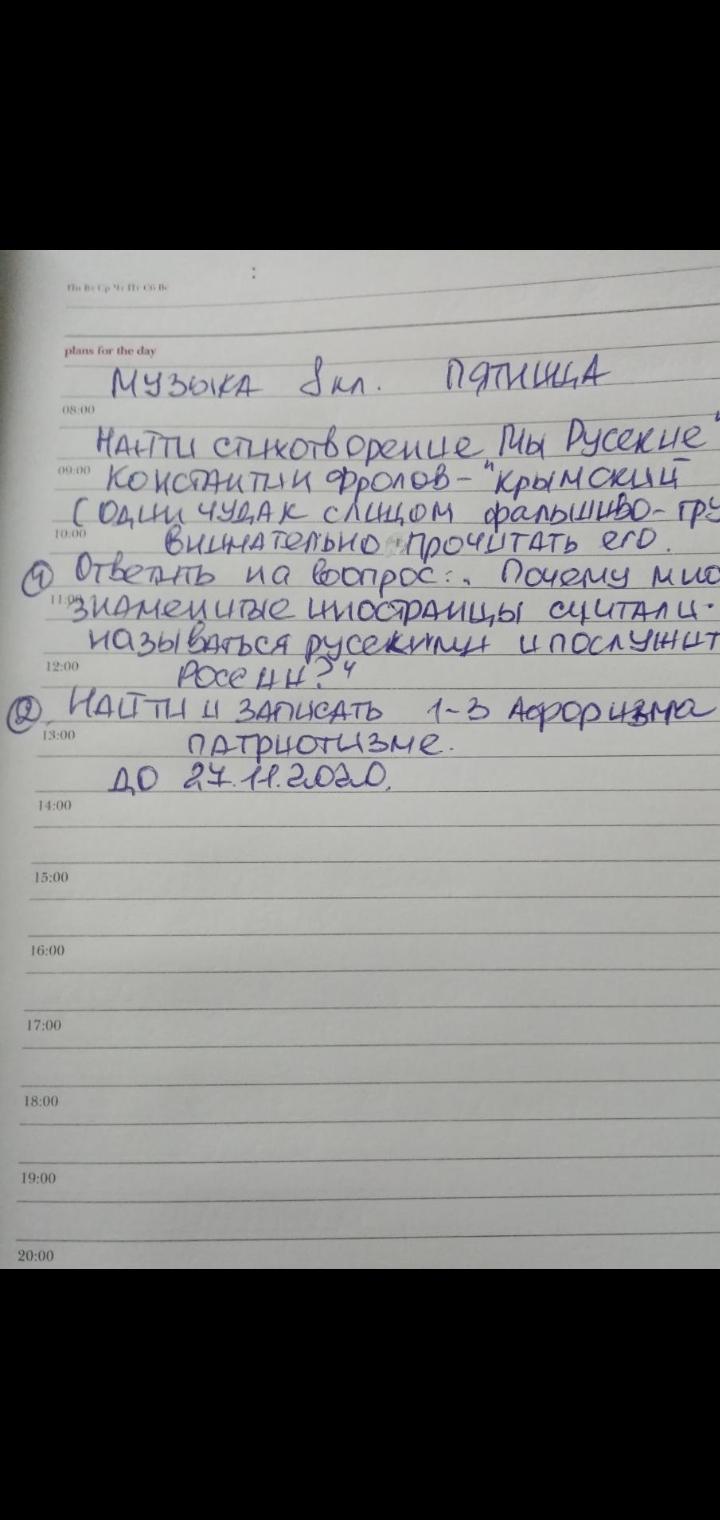 Пн Вт Ср Чт Пт Сб Вс
plans for the day
МУЗЫКА 8 кл. ПЯТНИЦА
08:00
НАЙТИ СТИХОТВОРЕНИЕ МЫ РУССКИЕ"
09:00
КОНСТАНТИН ФРОЛОВ-"КРЫМСКИЙ
(ОДИН ЧУДАК С ЛИЦОМ ФАЛЬШИВО-ГРУ
10:00
ВНИМАТЕЛЬНО ПРОЧИТАТЬ ЕГО.
① ОТВЕТИТЬ НА ВОПРОС:. ПОЧЕМУ МНО
11:00
ЗНАМЕНИТЫЕ ИНОСТРАНЦЫ СЧИТАЛИ
НАЗЫВАТЬСЯ РУССКИМИ И ПОСЛУЖИТ
12:00
РОССИИ?"
② НАЙТИ И ЗАПИСАТЬ 1-3 АФОРИЗМА
13:00
ПАТРИОТИЗМЕ.
ДО 27.11.2020.
14:00
15:00
16:00
17:00
18:00
19:00
20:00